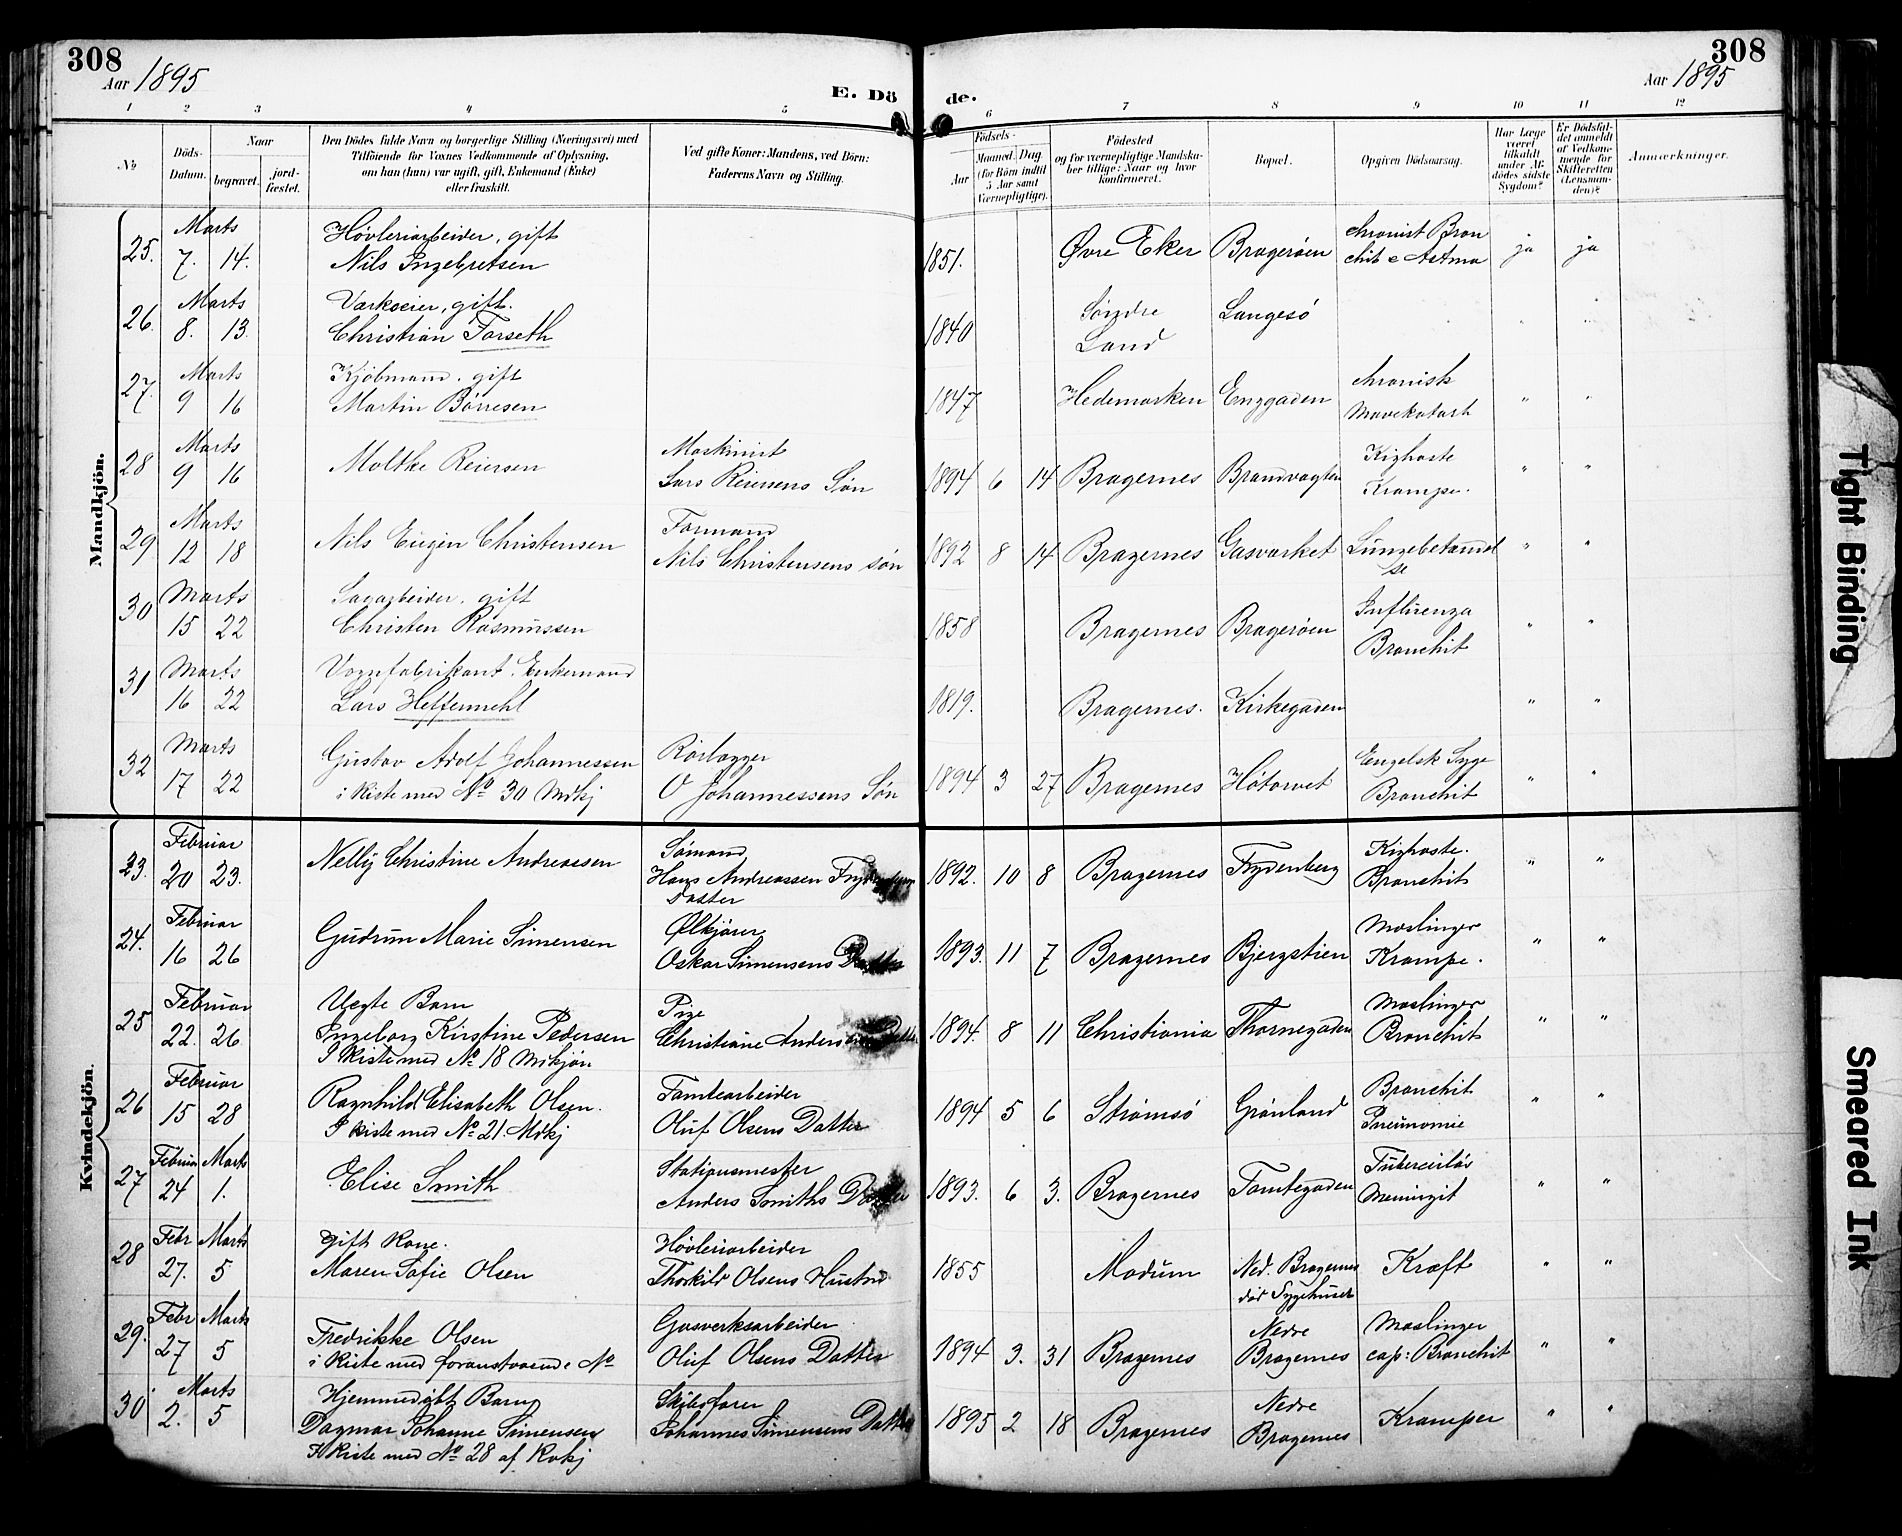 308
308
Aar 1895
Aar 1895
E. Dö de.
1 2 3 4 5 6 7 8 9 10 11 12
No
Döds-Datum.
Naar
begravet.
jord-fæstet.
Den Dödes fulde Navn og borgerlige Stilling (Næringsvei) med
Tilföiende for Voxnes Vedkommende af Oplysning,
om han (hun) var ugift, gift, Enkemand (Enke)
eller fraskilt.
Ved gifte Koner: Mandens, ved Börn:
Faderens Navn og Stilling.
Födsels-
Aar
Maaned. Dag
(for Börn indtil
5 Aar samt
Værnepligtige).
Födested
og for værnepligtige Mandska-
ber tillige: Naar og hvor
konfirmeret.
Bopæl.
Opgiven Dödsaarsag.
Har Læge
været
tilkaldt
under Af-
dödes sidste
Sygdom?
Er Dödsfal-
det anmeldt
af Vedkom-
mende for
Skifteretten
(Lensman-
den)?
Anmærkninger.
Mandkjön.
25. Marts 7. 14. Høvleriarbeider, gift
Nils Ingebretsen 1851. Øvre Eker Bragerøen chronist Bron
chit e Astma ja ja
26. Marts 8. 13. Værkseier, gift.
Christian Forseth 1840 Søndre
Land Langesø
27. Marts 9 16 Kjøbmand. gift
Martin Børresen 1847 Hedemarken Enggaden chronisk
Mavekatarh " "
28 Marts 9 16 Moltke Reiersen Maskinist
Lars Reiersens Søn 1894 6 14 Bragernes Brandvagten Kighoste
Krampe. " "
29 Marts 12 18 Nils Eugen Christensen Formand
Nils Christensens søn 1892 8 14 Bragernes Gasværket Lungebetændel
se " "
30 Marts 15 22 Sagarbeider. gift
Christen Rasmussen 1858 Bragernes Bragerøen Influenza
Bronchit " "
31 Marts 16 22 Vognfabrikant. Enkemand
Lars Heltermehl 1819. Bragernes. Kirkegaden " "
32 Marts 17 22 Gustav Adolf Johannessen
i Kiste med No 30 Mdkj Rørlægger
O Johannessens Søn 1894 3 27 Bragernes Høtorvet Engelsk Syge
Bronchit " "
Kvindekjön.
23. Februar 20 23. Nelly Christine Andreassen Sømand
Hans Andreassen
Datter 1892. 10 8 Bragernes Frydenberg Kighoste.
Bronchit " "
24. Februar 16 26 Gudrun Marie Simensen Ølkjører
Oskar Simensens Datter 1893. 11 7 Bragernes Bjergstien Mæslinger
Krampe. " "
25 Februar 22. 26 Uegte Barn
Ingeborg Kirstine Pedersen
I Kiste med No 18 Mdkjøn Pige
Christiane 1894. 8 11 Christiania Thornegaden Mæslinger
Bronchit " "
26 Februar 15 28 Ragnhild Elisabeth Olsen.
I Kiste med No 21. Mdkj Tomtearbeider
Oluf Olsens Datter 1894 5 6 Strømsø Grønland Bronchit
Pneumonie " "
27 Februar Marts 24 1. Elise Smith Stationsmester
Anders Smiths Datter 1893. 6 3. Bragernes Tomtegaden Tuberculøs
Meningit " "
28 Febr Marts 27. 5 Gift Kone.
Maren Sofie Olsen Høvleriarbeider
Thorkild Olsens Hustru 1855 Modum Ned. Bragernes
død Sygehuset Kræft " "
29. Febr Marts 27 5 Fredrikke Olsen
i Kiste med foranstaaende No Gasverksarbeider
Oluf Olsens Datter 1894 3. 31 Bragernes Nedre
Bragernes Mæslinger
cap: Bronchit " "
30 Marts 2. 5 Hjemmedøbt Barn
Dagmar Johanne Simensen
I Kiste med No 28 af Kvkj Skibsfører
Johannes Simensens Datter 1895 2 18 Bragernes Nedre
Bragernes Kramper " "
Tight Binding
Smeared Ink